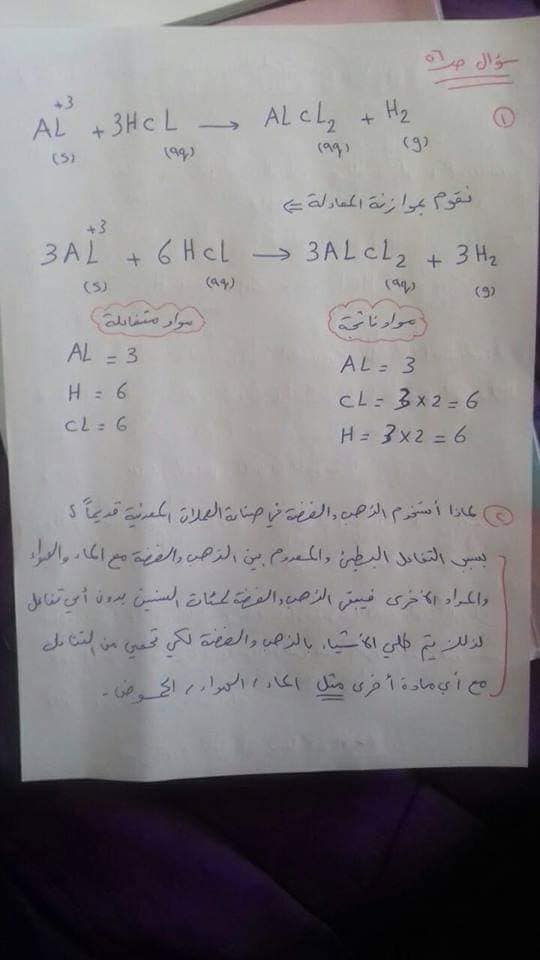 سؤال ص٥٦
① AL⁺³(s) + 3HCL(aq) → ALCL₂(aq) + H₂(g)
نقوم بموازنة المعادلة ⇐
3AL⁺³(s) + 6HCL(aq) → 3ALCL₂(aq) + 3H₂(g)
مواد متفاعلة
AL = 3
H = 6
CL = 6
مواد ناتجة
AL = 3
CL = 3×2 = 6
H = 3×2 = 6
② لماذا أستخدم الذهب والفضة في صناعة العملات المعدنية قديماً؟
بسبب التفاعل البطيئ والمعدوم بين الذهب والفضة مع الماء والهواء
والمواد الأخرى فيبقى الذهب والفضة لمئات السنين بدون أي تفاعل
لذلك يتم طلي الأشياء بالذهب والفضة لكي تحمى من التفاعل
مع أي مادة أخرى مثل الماء، الهواء، الحموض.